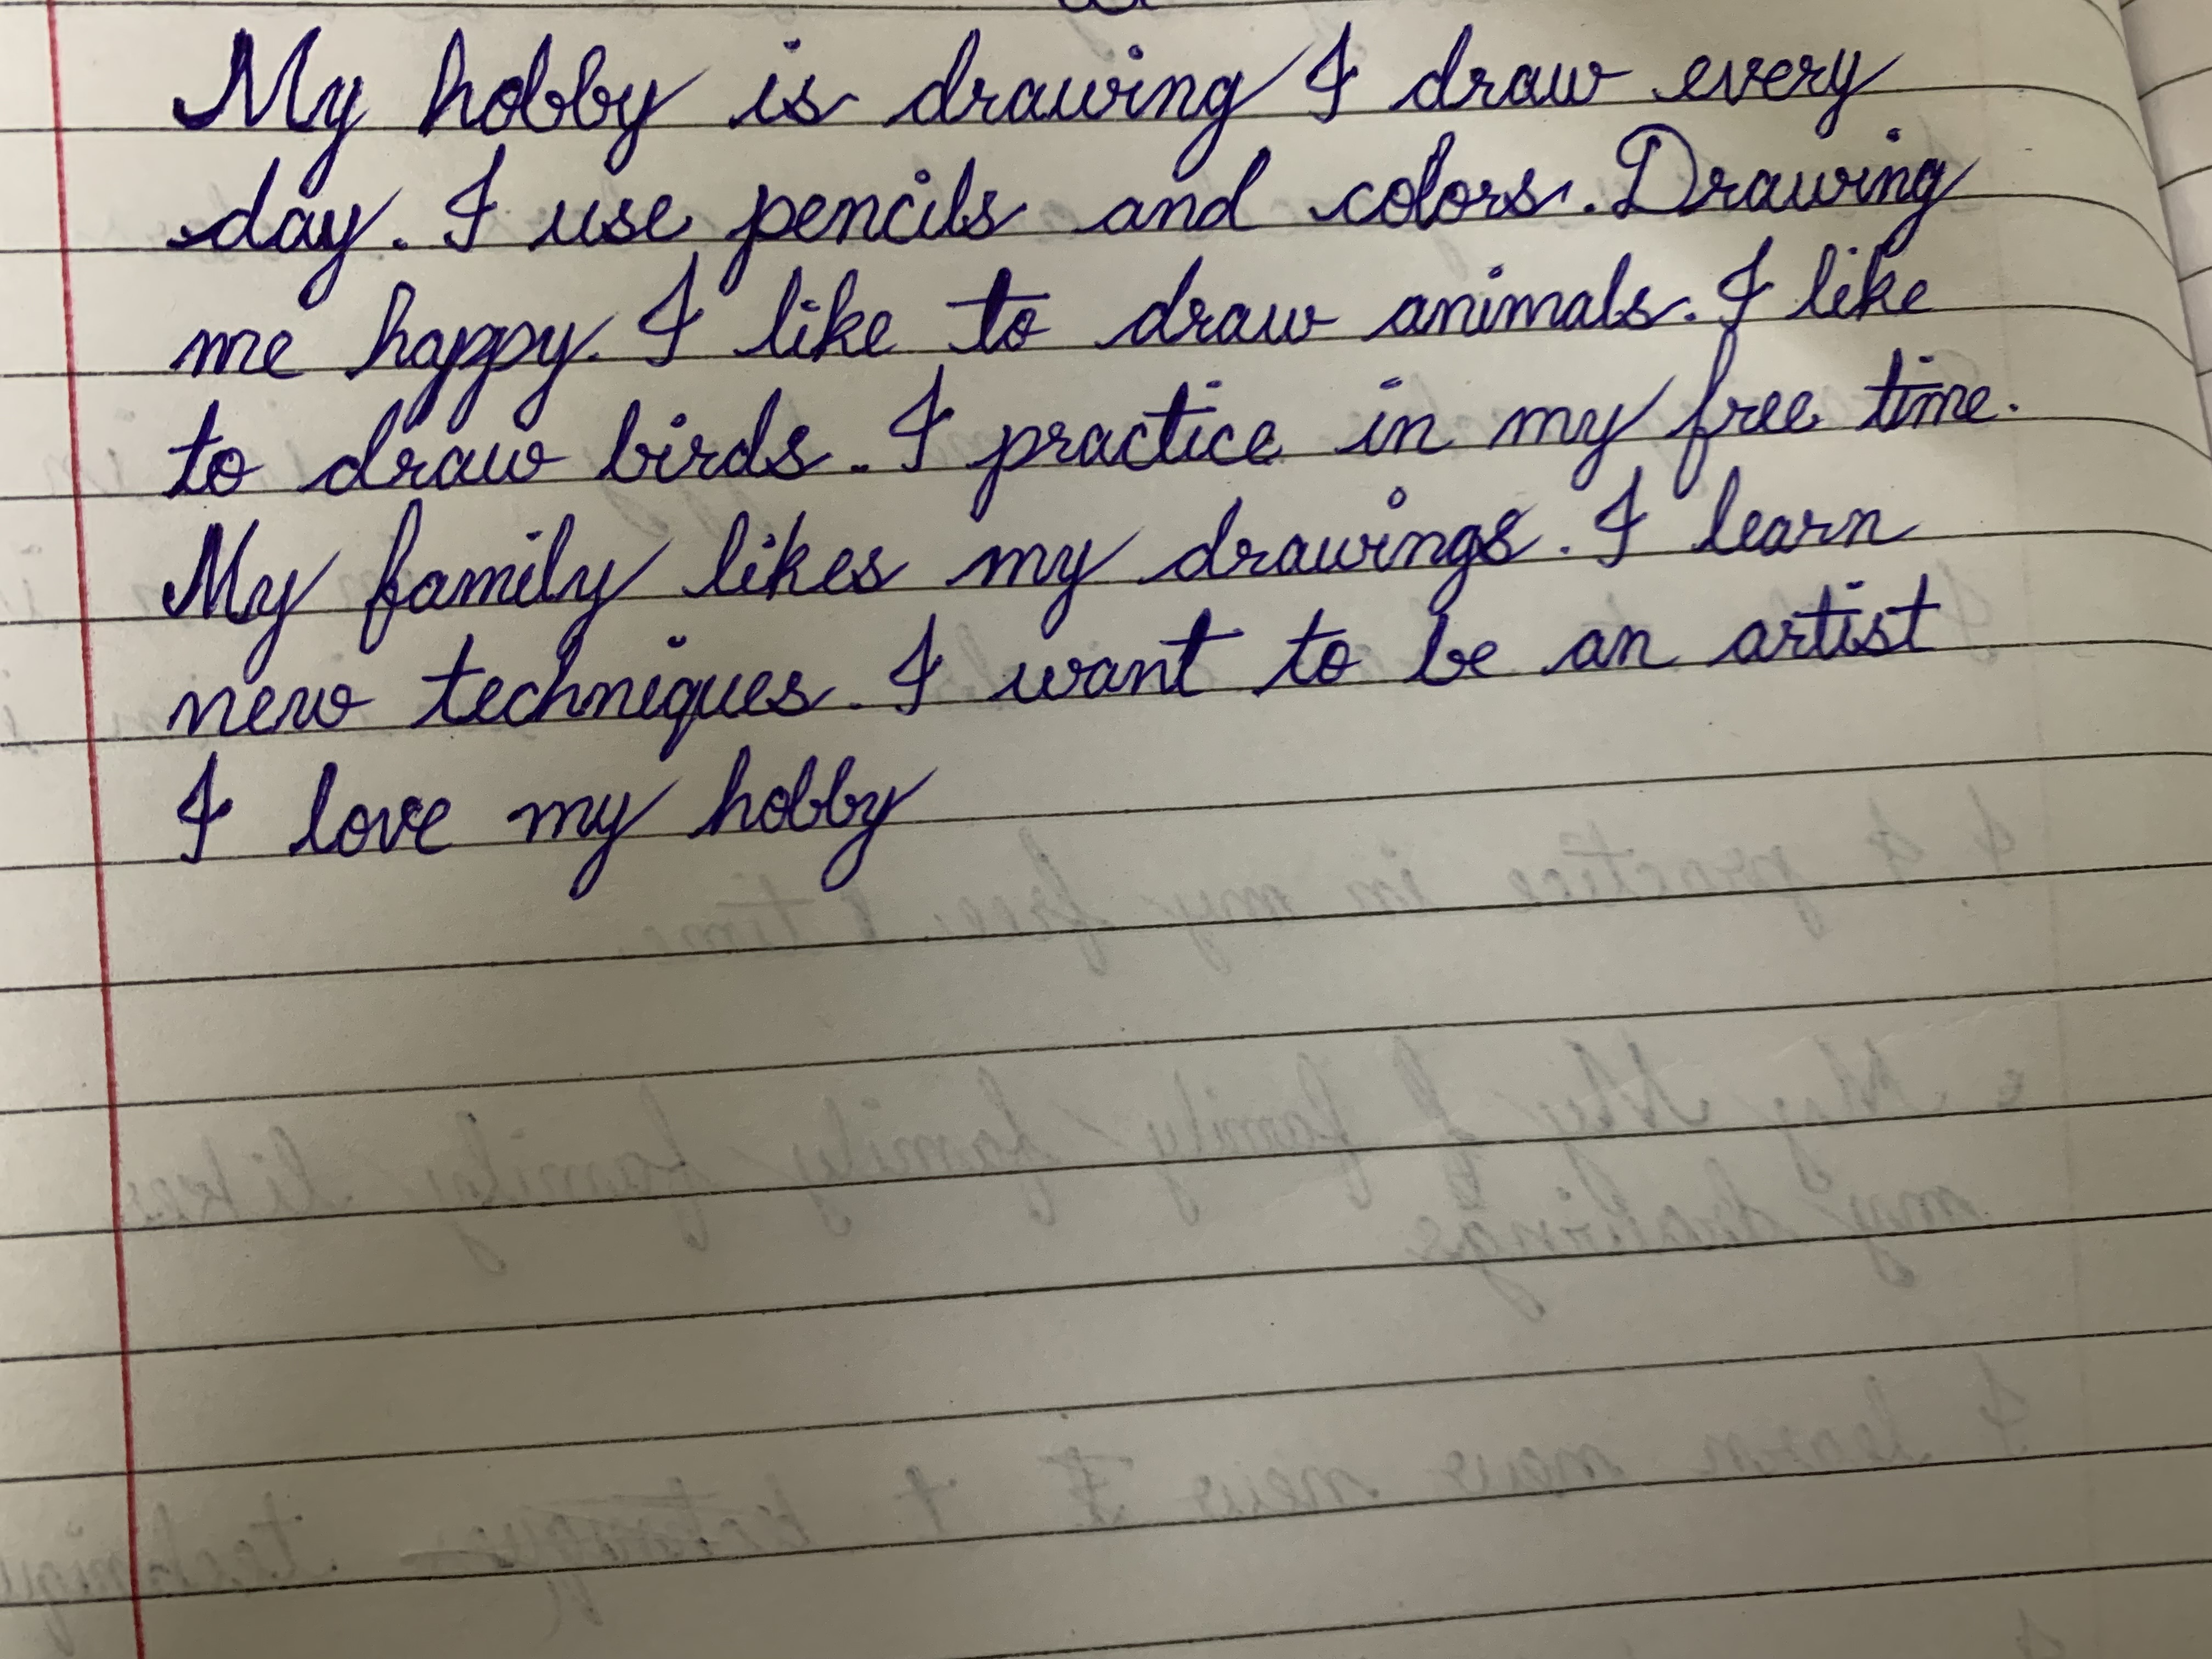 My hobby is drawing I draw every
day. I use pencils and colors. Drawing
me happy. I like to draw animals. I like
to draw birds. I practice in my free time.
My family likes my drawings. I learn
new techniques. I want to be an artist
I love my hobby